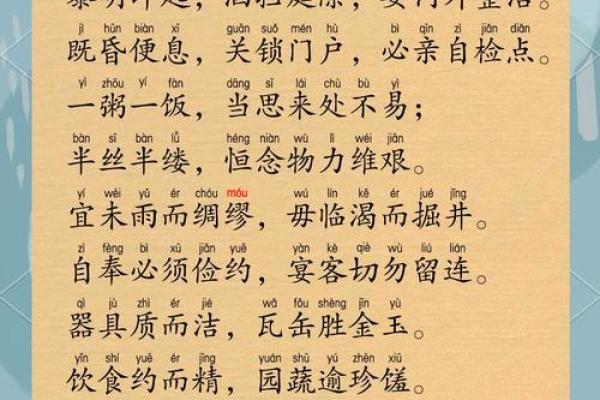 jì hūn biàn xī guān suǒ mén hù bì qīn zì jiǎn diǎn
既昏便息，关锁门户，必亲自检点。
yì zhōu yí fàn dāng sī lái chù bù yì
一粥一饭，当思来处不易；
bàn sī bàn lǚ héng niàn wù lì wéi jiān
半丝半缕，恒念物力维艰。
yí wèi yǔ ér chóu móu wú lín kě ér jué jǐng
宜未雨而绸缪，毋临渴而掘井。
zì fèng bì xū jiǎn yuē yàn kè qiè wù liú lián
自奉必须俭约，宴客切勿留连。
qì jù zhì ér jié wǎ fǒu shèng jīn yù
器具质而洁，瓦缶胜金玉。
yǐn shí yuē ér jīng yuán shū yú zhēn xiū
饮食约而精，园蔬逾珍馐。